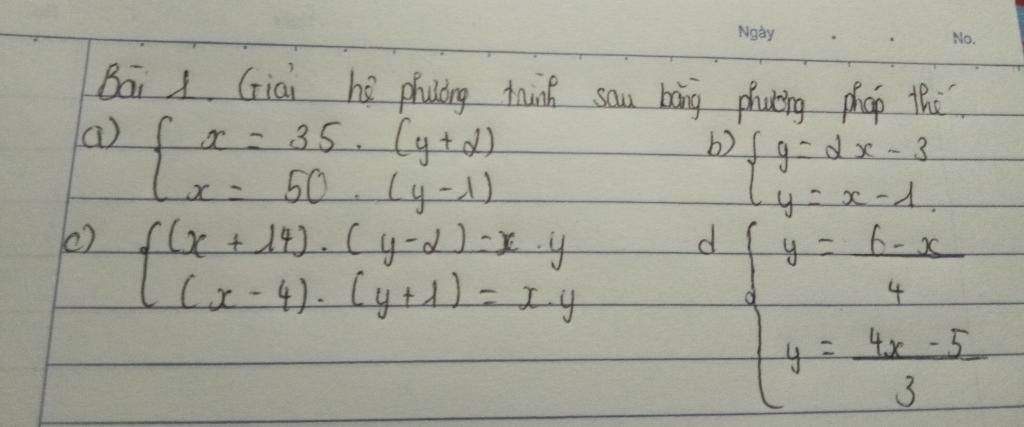 Ngày . . No.
Bài 1. Giải hệ phương trình sau bằng phương pháp thế.
a) { x = 35 . (y+2) b) { y = 2x - 3
x = 50 . (y-1) y = x - 1.
c) { (x + 14) . (y-2) = x . y d { y = 6 - x
(x - 4) . (y+1) = x . y 4
y = 4x - 5
3